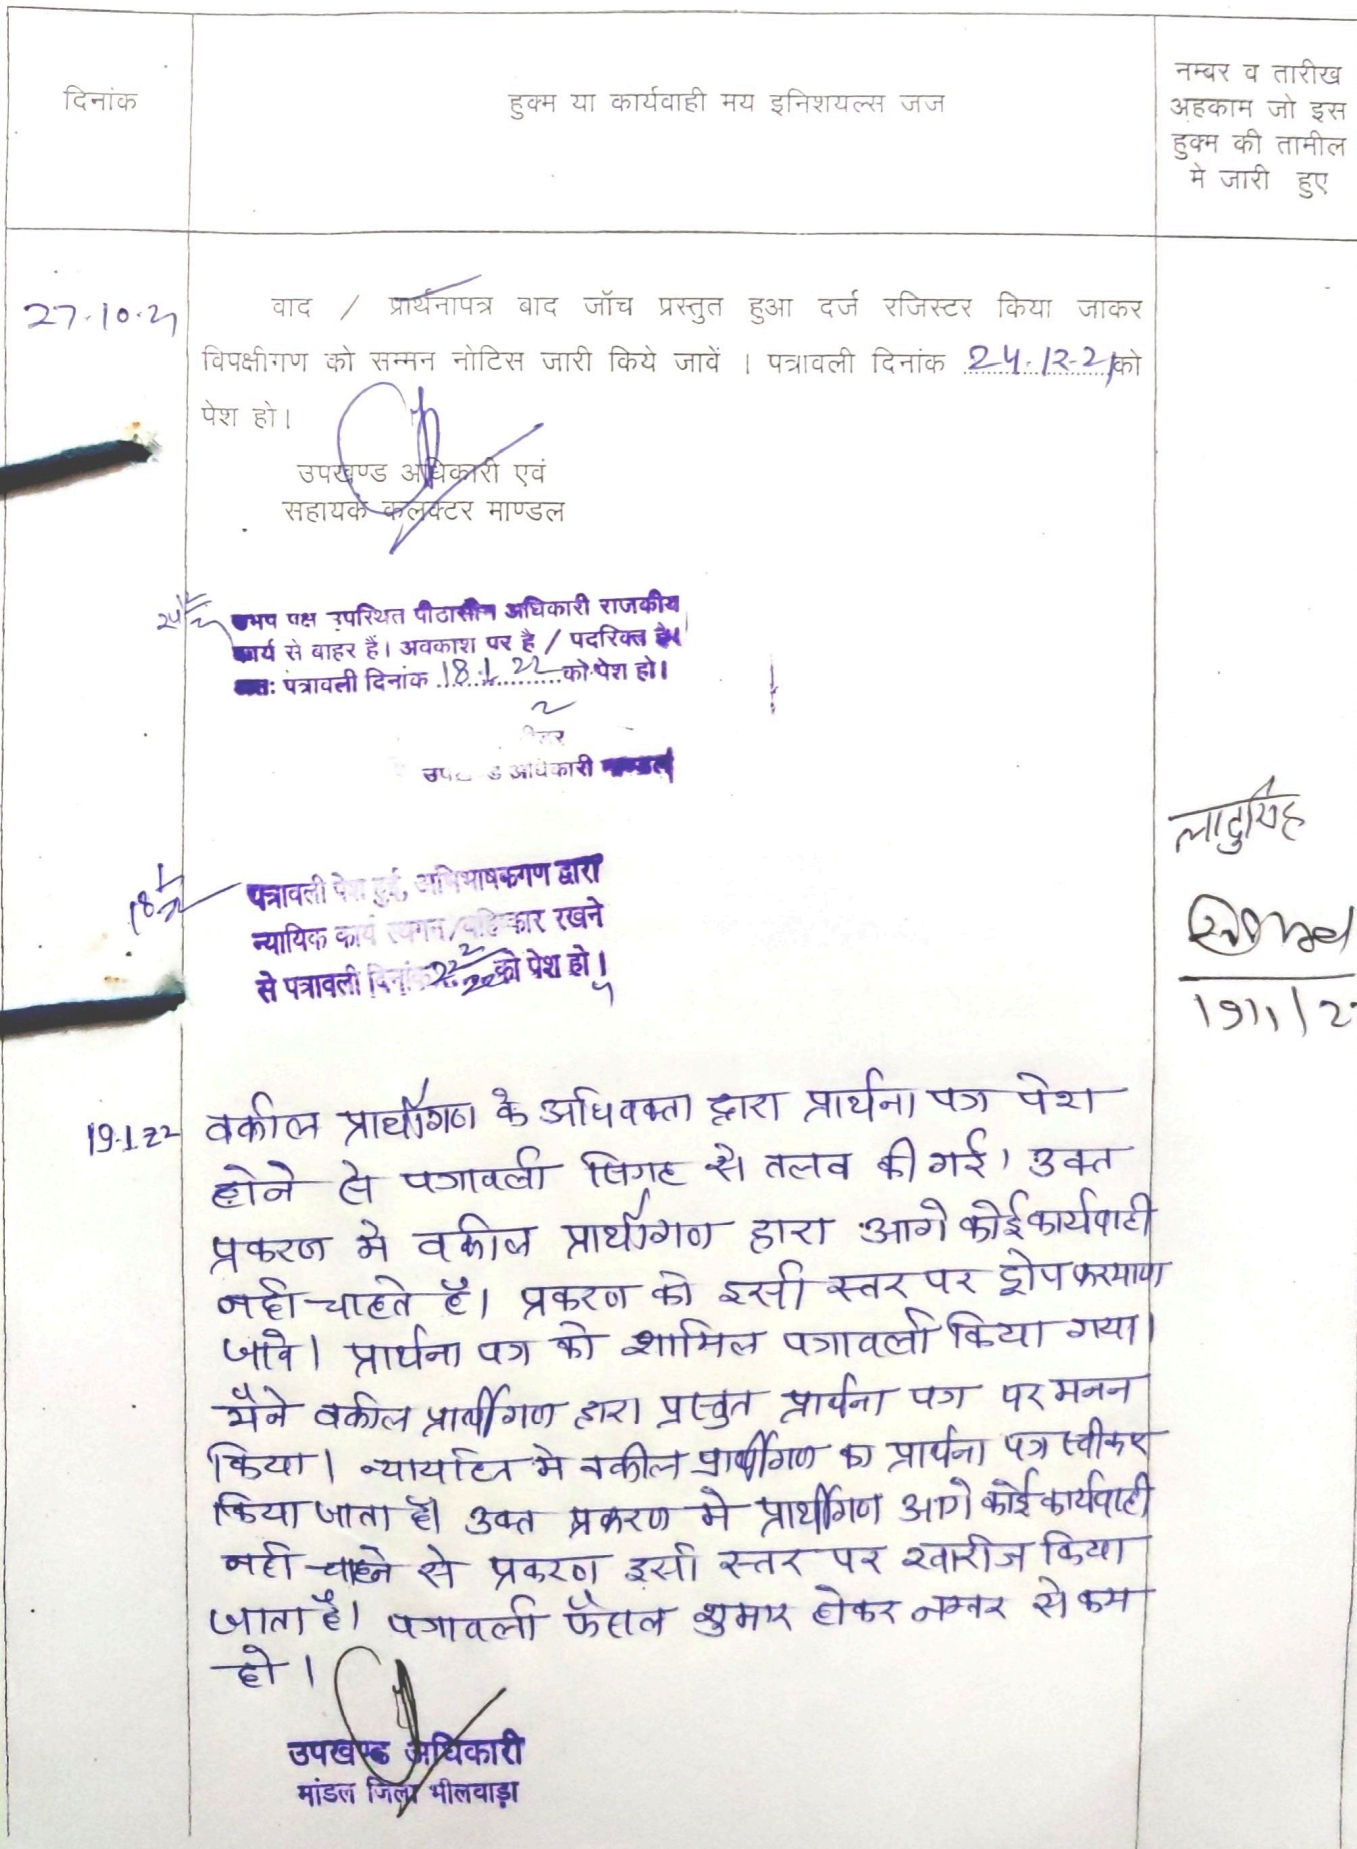 दिनांक
हुक्म या कार्यवाही मय इनिशयल्स जज
नम्बर व तारीख
अहकाम जो इस
हुक्म की तामील
मे जारी हुए
27.10.21
वाद / प्रार्थनापत्र बाद जॉच प्रस्तुत हुआ दर्ज रजिस्टर किया जाकर
विपक्षीगण को सम्मन नोटिस जारी किये जावें । पत्रावली दिनांक 24.12.21 को
पेश हो।
उपखण्ड अधिकारी एवं
सहायक कलक्टर माण्डल
उभय पक्ष उपस्थित पीठासीन अधिकारी राजकीय
कार्य से बाहर हैं। अवकाश पर है / पदरिक्त है।
अतः पत्रावली दिनांक 18.1.22 को पेश हो।
उपखण्ड अधिकारी माण्डल
लादुसिंह
पत्रावली पेश हुई, अभिभाषकगण द्वारा
न्यायिक कार्य स्थगन/बहिष्कार रखने
से पत्रावली दिनांक को पेश हो।
19.1.22
वकील प्रार्थीगण के अधिवक्ता द्वारा प्रार्थना पत्र पेश
होने से पत्रावली से तलब की गई। उक्त
प्रकरण मे वकील प्रार्थीगण द्वारा आगे कोई कार्यवाही
नही चाहते है। प्रकरण को इसी स्तर पर ड्रोप फरमाया
जावे। प्रार्थना पत्र को शामिल पत्रावली किया गया।
मैने वकील प्रार्थीगण द्वारा प्रस्तुत प्रार्थना पत्र पर मनन
किया। न्यायहित मे वकील प्रार्थीगण का प्रार्थना पत्र स्वीकार
किया जाता है। उक्त प्रकरण मे प्रार्थीगण आगे कोई कार्यवाही
नही चाहने से प्रकरण इसी स्तर पर खारीज किया
जाता है। पत्रावली फैसल शुमार होकर नम्बर से कम
हो।
उपखण्ड अधिकारी
मांडल जिला भीलवाड़ा